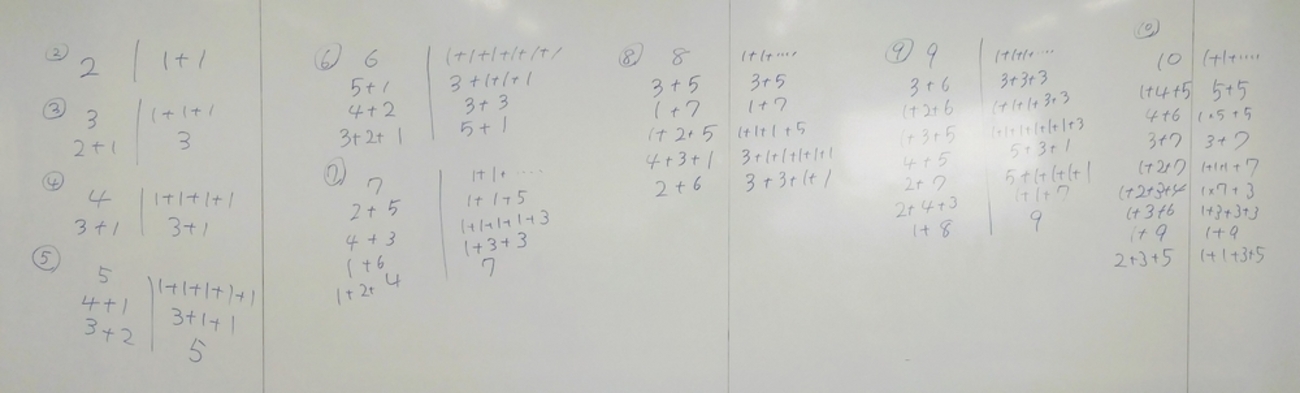 ②
2 | 1+1
③
3 | 1+1+1
2+1 | 3
④
4 | 1+1+1+1
3+1 | 3+1
⑤
5 | 1+1+1+1+1
4+1 | 3+1+1
3+2 | 5
⑥
6 | 1+1+1+1+1+1
5+1 | 3+1+1+1
4+2 | 3+3
3+2+1 | 5+1
⑦
7 | 1+1+....
2+5 | 1+1+5
4+3 | 1+1+1+1+3
1+6 | 1+3+3
1+2+4 | 7
⑧
8 | 1+1+....
3+5 | 3+5
1+7 | 1+7
1+2+5 | 1+1+1+5
4+3+1 | 3+1+1+1+1+1
2+6 | 3+3+1+1
⑨
9 | 1+1+1+....
3+6 | 3+3+3
1+2+6 | 1+1+1+3+3
1+3+5 | 1+1+1+1+1+1+3
4+5 | 5+3+1
2+7 | 5+1+1+1+1
2+4+3 | 1+1+7
1+8 | 9
⑩
10 | 1+1+....
1+4+5 | 5+5
4+6 | 1×5+5
3+7 | 3+7
1+2+7 | 1+1+1+7
1+2+3+4 | 1×7+3
1+3+6 | 1+3+3+3
1+9 | 1+9
2+3+5 | 1+1+3+5